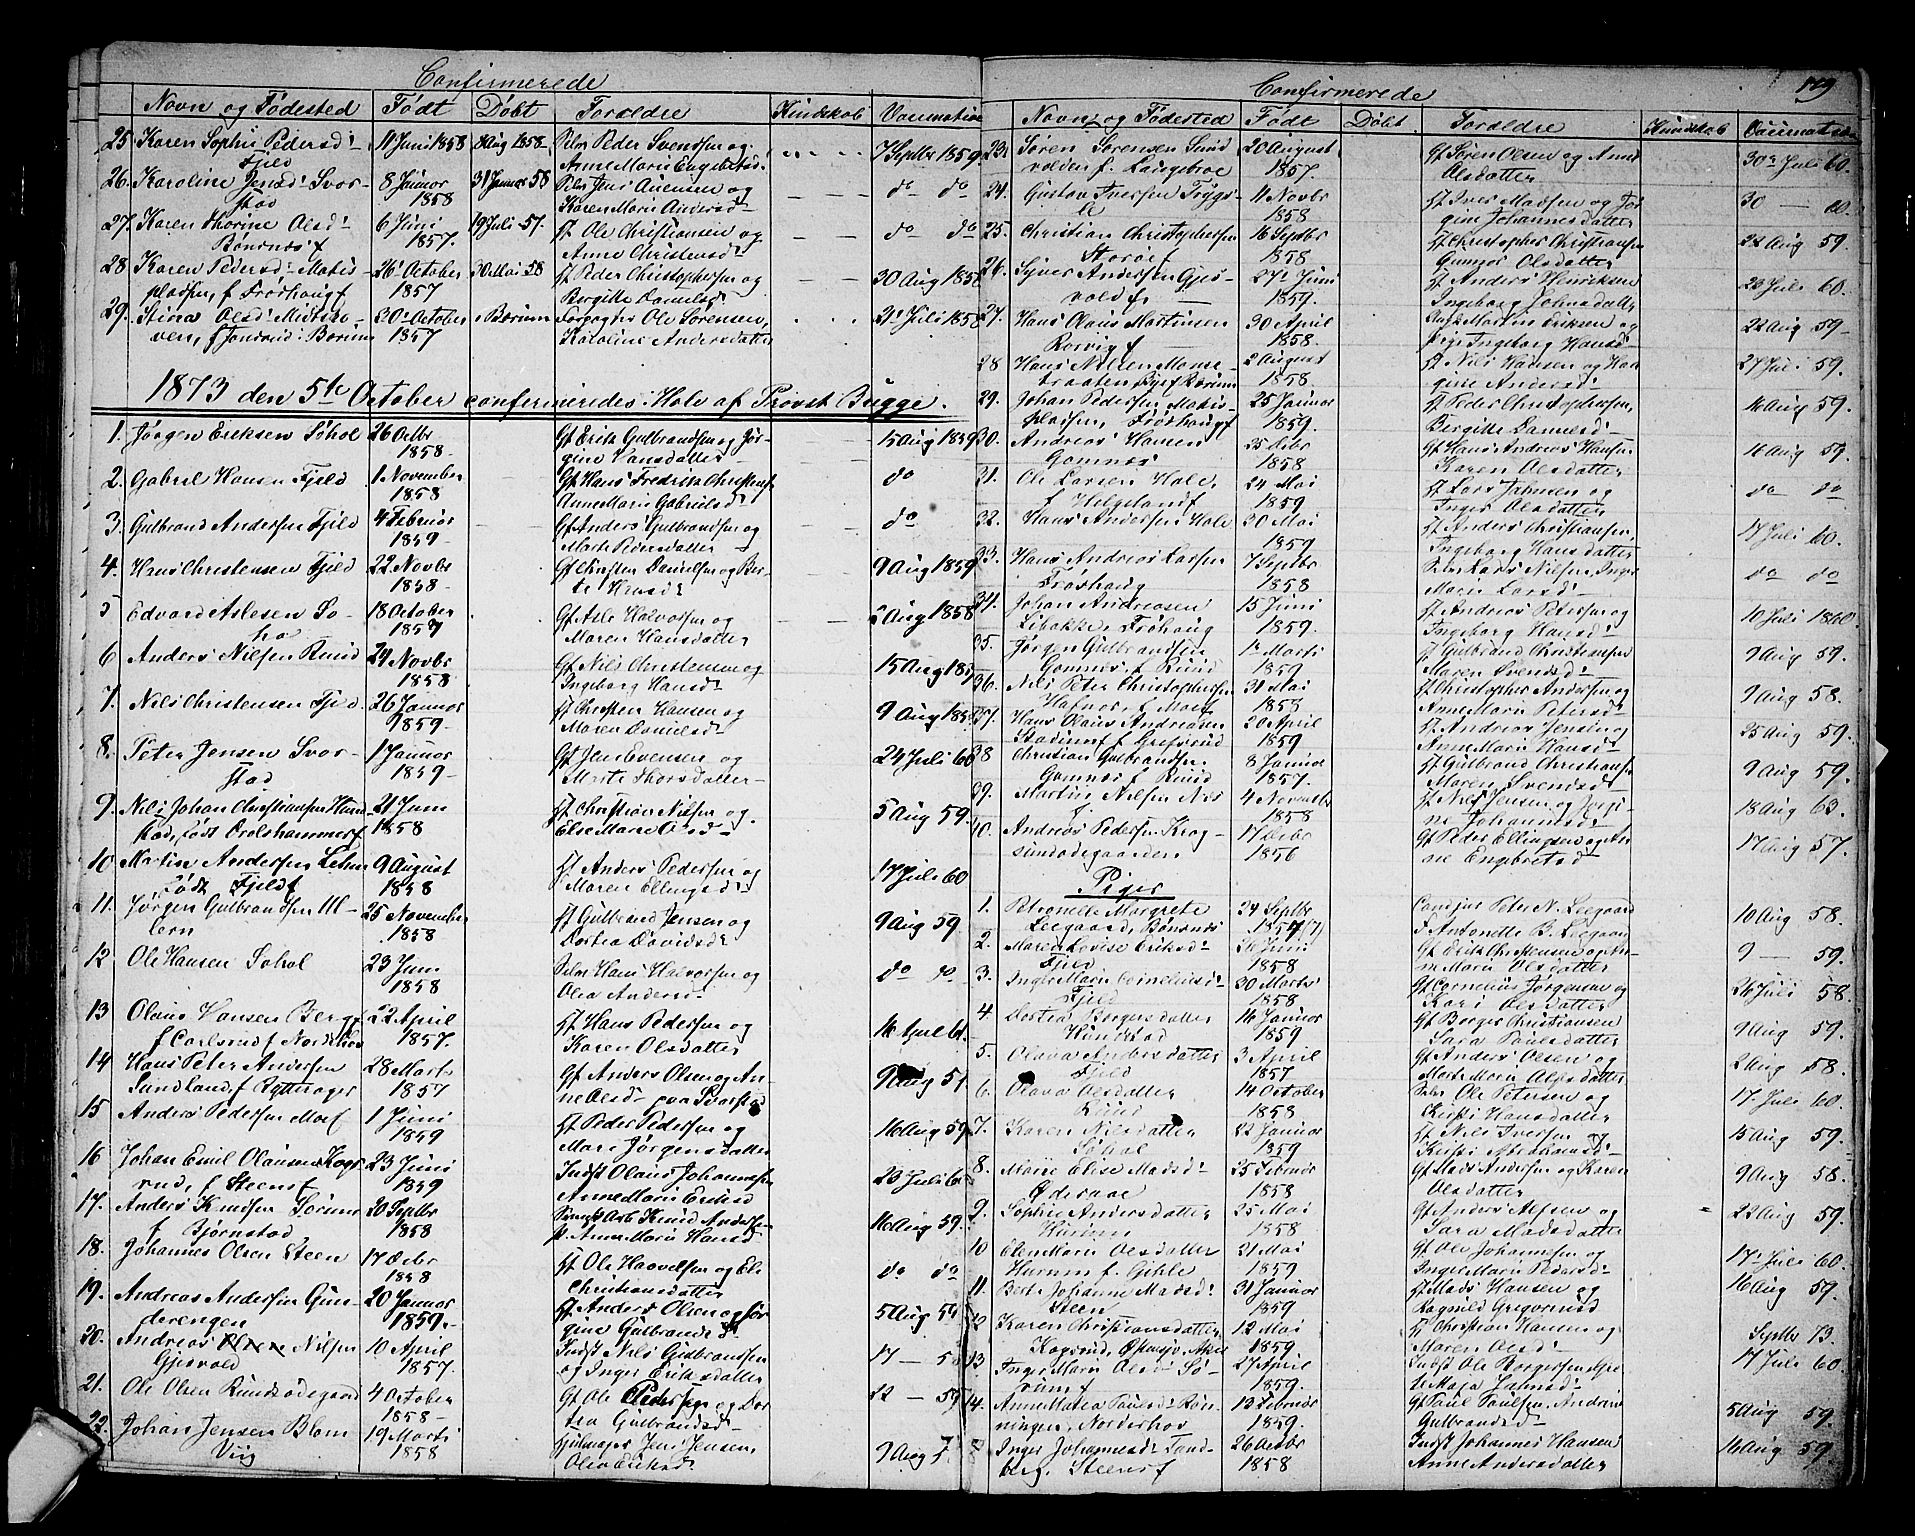 Confirmerede
Navn og Fødested Født Døbt Forældre Kundskab Vaccination
25. Karen Sophie Pedersd: 11 Juni 1858 8 Aug 1858 Peder Svendsen og 7 Septbr 1859
Fjeld Anne Marie Engebretsd:
26. Karoline Jensd: Svor- 8 Januar 31 Januar 58 Jens Auensen og do do
stad 1858 Karen Marie Andersd:
27. Karen Thorine Olsd: 6 Juni 19 Juli 57. Gf. Ole Christiansen og do do
Bønsnæs f 1857. Anne Christensd:
28. Karen Pedersd: Matis- 26 October 30 Mai 58 Gf Peder Christophersen og 30 Aug 1858
pladsen, f Frøshaug f 1857 Birgitte Danielsd:
29. Stina Olsd: Midtsko- 30 October Bærum Forpagter Ole Sørensen, 21 Juli 1858
ven, f Bærum 1857 Karoline Andersdatter
1873 den 5te October confirmeredes i Hole af Provst Bugge.
1. Jørgen Eriksen Søhol 26 Octbr Gf Erik Gulbrandsen og Jør- 15 Aug 1859
1858. gine Hansdatter
2. Gabriel Hansen Fjeld 1 November Gf Hans Fredrik Christens. do
1858 Anne Marie Gabrielsd:
3. Gulbrand Andersen Fjeld 4 Februar Gf Anders Gulbrandsen og do
1859 Marte Pedersdatter
4. Hans Christensen Fjeld 22 Novbr Gf Christen Danielsen og Ber- 9 Aug 1859
1858 te Hansd:
5 Edvard Aslesen So- 18 October Gf Asle Halvorsen og Aug 1858
1857 Maren Hansdatter
6 Anders Nilsen Ruud 24 Novbr Gf Nils Christensen og 15 Aug
1858 Ingeborg Hansd:
7. Nils Christensen Fjeld 26 Januar Gf Christen Hansen og 9 Aug
1859. Maren Danielsd:
8. Peter Jensen Svor- 1 Januar Gf Jens Evensen og 24 Juli 60
stad 1859 Marte Thorsdatter
9. Nils Johan Christiansen Hund- 21 Juni Gf Christian Nilsen og 5 Aug 59.
stad, født Drolshammer f 1858 Else Marie Olsd:
10. Martin Andersen 9 August Gf Anders Pedersen og 17 Juli 60
født Fjeld f 1858 Maren Ellingsd:
11. Jørgen Gulbrandsen Ul- 25 November Gf Gulbrand Jensen og 9 Aug 59.
lern 1858 Dortea Davidsd:
12 Ole Hansen Sohol 23 Juni Hans Halvorsen og do do
1858 Olea Andersd:
13 Olaus Hansen Berg 22 April Gf Hans Pedersen og 16 April 61.
f Carlsrud f Norderhov 1857. Karen Olsdatter
14 Hans Peter Andersen 28 Marts Gf Anders Olsen og An- 9 Aug 57
Sundland f Rytterager 1857 ne Olsd: paa Svarstad
15 Anders Pedersen Moe f 1 Juni Gf Peder Pedersen og 16 Aug 59
1859 Mari Jørgensdatter
16 Johan Emil Olausen Kogs- 23 Juni Indst Olaus Johannesen 23 Juli 61
rud, f Steens f 1859 Anne Marie Eriksd
17. Anders Knudsen Sørum 20 Septbr Knud Anders- 16 Aug 59.
f Bjørnstad 1858 Anne Marie Hansd
18. Johannes Olsen Steen 17 Decbr Gf Ole Haavelsen og Eli do do
1858 Christiansdatter
19. Andreas Andersen Gun- 20 Januar Gf Anders Olsen og Jør 5 Aug 59
derengen 1859. gine Gulbrandsd
20. Andreas Olsen Nilsen 10 April Indst Nils Gulbrandsen 17 — 58
Gjesvold 1857. og Inger Eriksdatter
21. Ole Olsen Rundsødegaard 4 October Gf Ole Pedersen og Dor 12 — 59
1858 tea Gulbrandsd:
22. Johan Jensen Blom 19 Marts Hjulmager Jens Jensen, 9 Aug
Viig 1858 Olea Eriksd:
Confirmerede 119
Navn og Fødested Født Døbt Forældre Kundskab Vaccination
23. Søren Sørensen Sund 20 August Gf Søren Olsen og Anne 30 Juli 60.
volden f. Langebroe 1857. Olsdatter
24. Gustav Iversen Trygs- 11 Novbr Gf Iver Madsen og Jør 30 — 60.
1858 gine Johannesdatter
25. Christian Christophersen 16 Septbr Gf Christopher Christiansen 22 Aug 59.
Storøe f 1858 Gunnor Olsdatter
26. Syver Andersen Gjes- 27 Juni Gf Anders Henriksen 23 Juli 60.
vold f. — 1859. Ingeborg Johnsdatter
27. Hans Olaus Martinsen 30 April Martin Eriksen og 22 Aug 59
Rørvig f 1858. Ingeborg Hansd:
28 Hans Nilsen Monse- 2 August Gf Nils Hansen og 27 Juli 59.
braaten Bye f Bærum 1858. gine Andersd:
29. Johan Pedersen Matis- 25 Januar Gf Peder Christophersen, 16 Aug 59.
pladsen, Frøshaug f 1859. Birgitte Danielsd:
30. Andreas Hansen 25 Decbr Gf Hans Andreas Hansen 16 Aug 59.
Gomnæs 1858 Karen Olsdatter
31. Ole Larsen Hole, 24 Mai Gf Lars Jahnsen og do do
f Helgeland f 1859 Inger Olsdatter
32. Hans Andersen Hole 30 Mai Gf Anders Christiansen, 17 Juli 60.
1859 Ingeborg Hansdatter
33. Hans Andreas Larsen 7 Septbr Lars Nilsen, Inger do do
Frøshaug 1858 Marie Larsd:
34. Johan Andreasen 15 Juni Gf Andreas Petersen og 10 Juli 1860.
Libakke, Frøhaug 1859. Ingeborg Hansd:
35. Jørgen Gulbrandsen 1 Marts Gf Gulbrand Christiansen 9 Aug 59.
Gomnæs f Ruud 1859 Maren Svensd:
36. Nils Peter Christophersen 31 Mai Gf Christopher Andersen og 9 Aug 58.
Hafnor, f Moe f 1858 Anne Marie Petersd:
37. Hans Olaus Andreasen 20 April Gf Andreas Jensen og 25 Aug 59.
f Grefsrud 1859 Anne Marie Hansd:
38 Christian Gulbrandsen 8 Januar Gf Gulbrand Christiansen 9 Aug 59.
Gomnæs f Ruud 1857. Maren Svensd:
39. Martin Nilsen Næs 4 November Gf Nils Jensen og Jørgi- 18 Aug 63.
f 1858 ne Johannesd:
40. Andreas Pedersen Krog- 17 Decbr Gf Peder Ellingsen og An- 17 Aug 57.
sundødegaarden 1856 ne Engebretsd
Piger
1. Petronelle Margrete 24 Septbr Candjur Peter N. Leegaard 10 Aug 58.
Leegaard, Bønsnæs 1857(?) & Antonette B. Leegaard
2. Maren Lovise Eriksd: 26 Juni Gf Erik Christensen og An- 9 — 59.
Fjeld 1858 ne Marie Olsdatter
3. Inger Marie Corneliusd: 30 Marts Gf Cornelius Jørgensen og 26 Juli 58.
Fjeld 1858 Kari Olsdatter
4. Dortea Borgersdatter 16 Januar Gf Borger Christiansen 9 Aug 59.
Hundstad 1859 Sara Paulsdatter
5. Olava Andersdatter 3 April Gf Anders Olsen og 2 Aug 58.
Fjeld 1857 Marte Marie Olsdatter
6. Olava Olsdatter 14 October Ole Petersen og 17 Juli 60.
Ruud 1858 Kirsti Hansdatter
7. Karen Nilsdatter 22 Januar Gf Nils Iversen og 15 Aug 59.
Søhol 1859 Kirsti Abrahamsd:
8. Marie Elise Madsd: 25 Februar Gf Mads Andersen og Karen 9 Aug 58.
1858 Olsdatter
9. Sophie Andersdatter 25 Mai Gf Anders Alfsen og 22 Aug 59.
Hurum 1858 Sara Madsdatter
10 Elen Marie Olsdatter 21 Mai Gf Ole Johannesen og 17 Juli 60.
Hurum f. Gihle 1859 Inger Marie Pedersd:
11. Berte Johanne Madsd: 31 Januar Gf Mads Hansen og 16 Aug 59.
Steen 1859 Ragnild Gregoriusd
12 Karen Christiansdatter 12 Mai Gf Christian Hansen og Septbr 73
Kogsrud, 1859. Maren Olsd:
13 Inger Marie Olsd: Sø- 27 April Indst Ole Borgersen Gre 17 Juli 60.
rum f 1859. te Maja Jahnsd:
14. Anne Matea Paulsd: Røn- 12 Februar Gf Paul Paulsen, Andrine 5 Aug 59.
ningen, Norderhov 1859. Gulbrandsd:
Inger Johannesd: Tand- 26 Octbr Indst Johannes Hansen 16 Aug 59.
berg, Steens f 1858 Anne Andersdatter